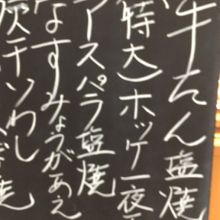 牛たん塩焼
(特大)ホッケ一夜
アスパラ塩焼
なすみょうがあえ
灰チソわし